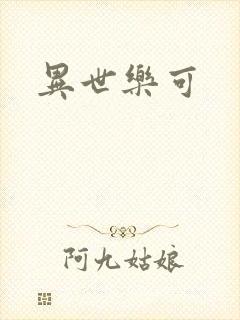 異世樂可
阿九姑娘